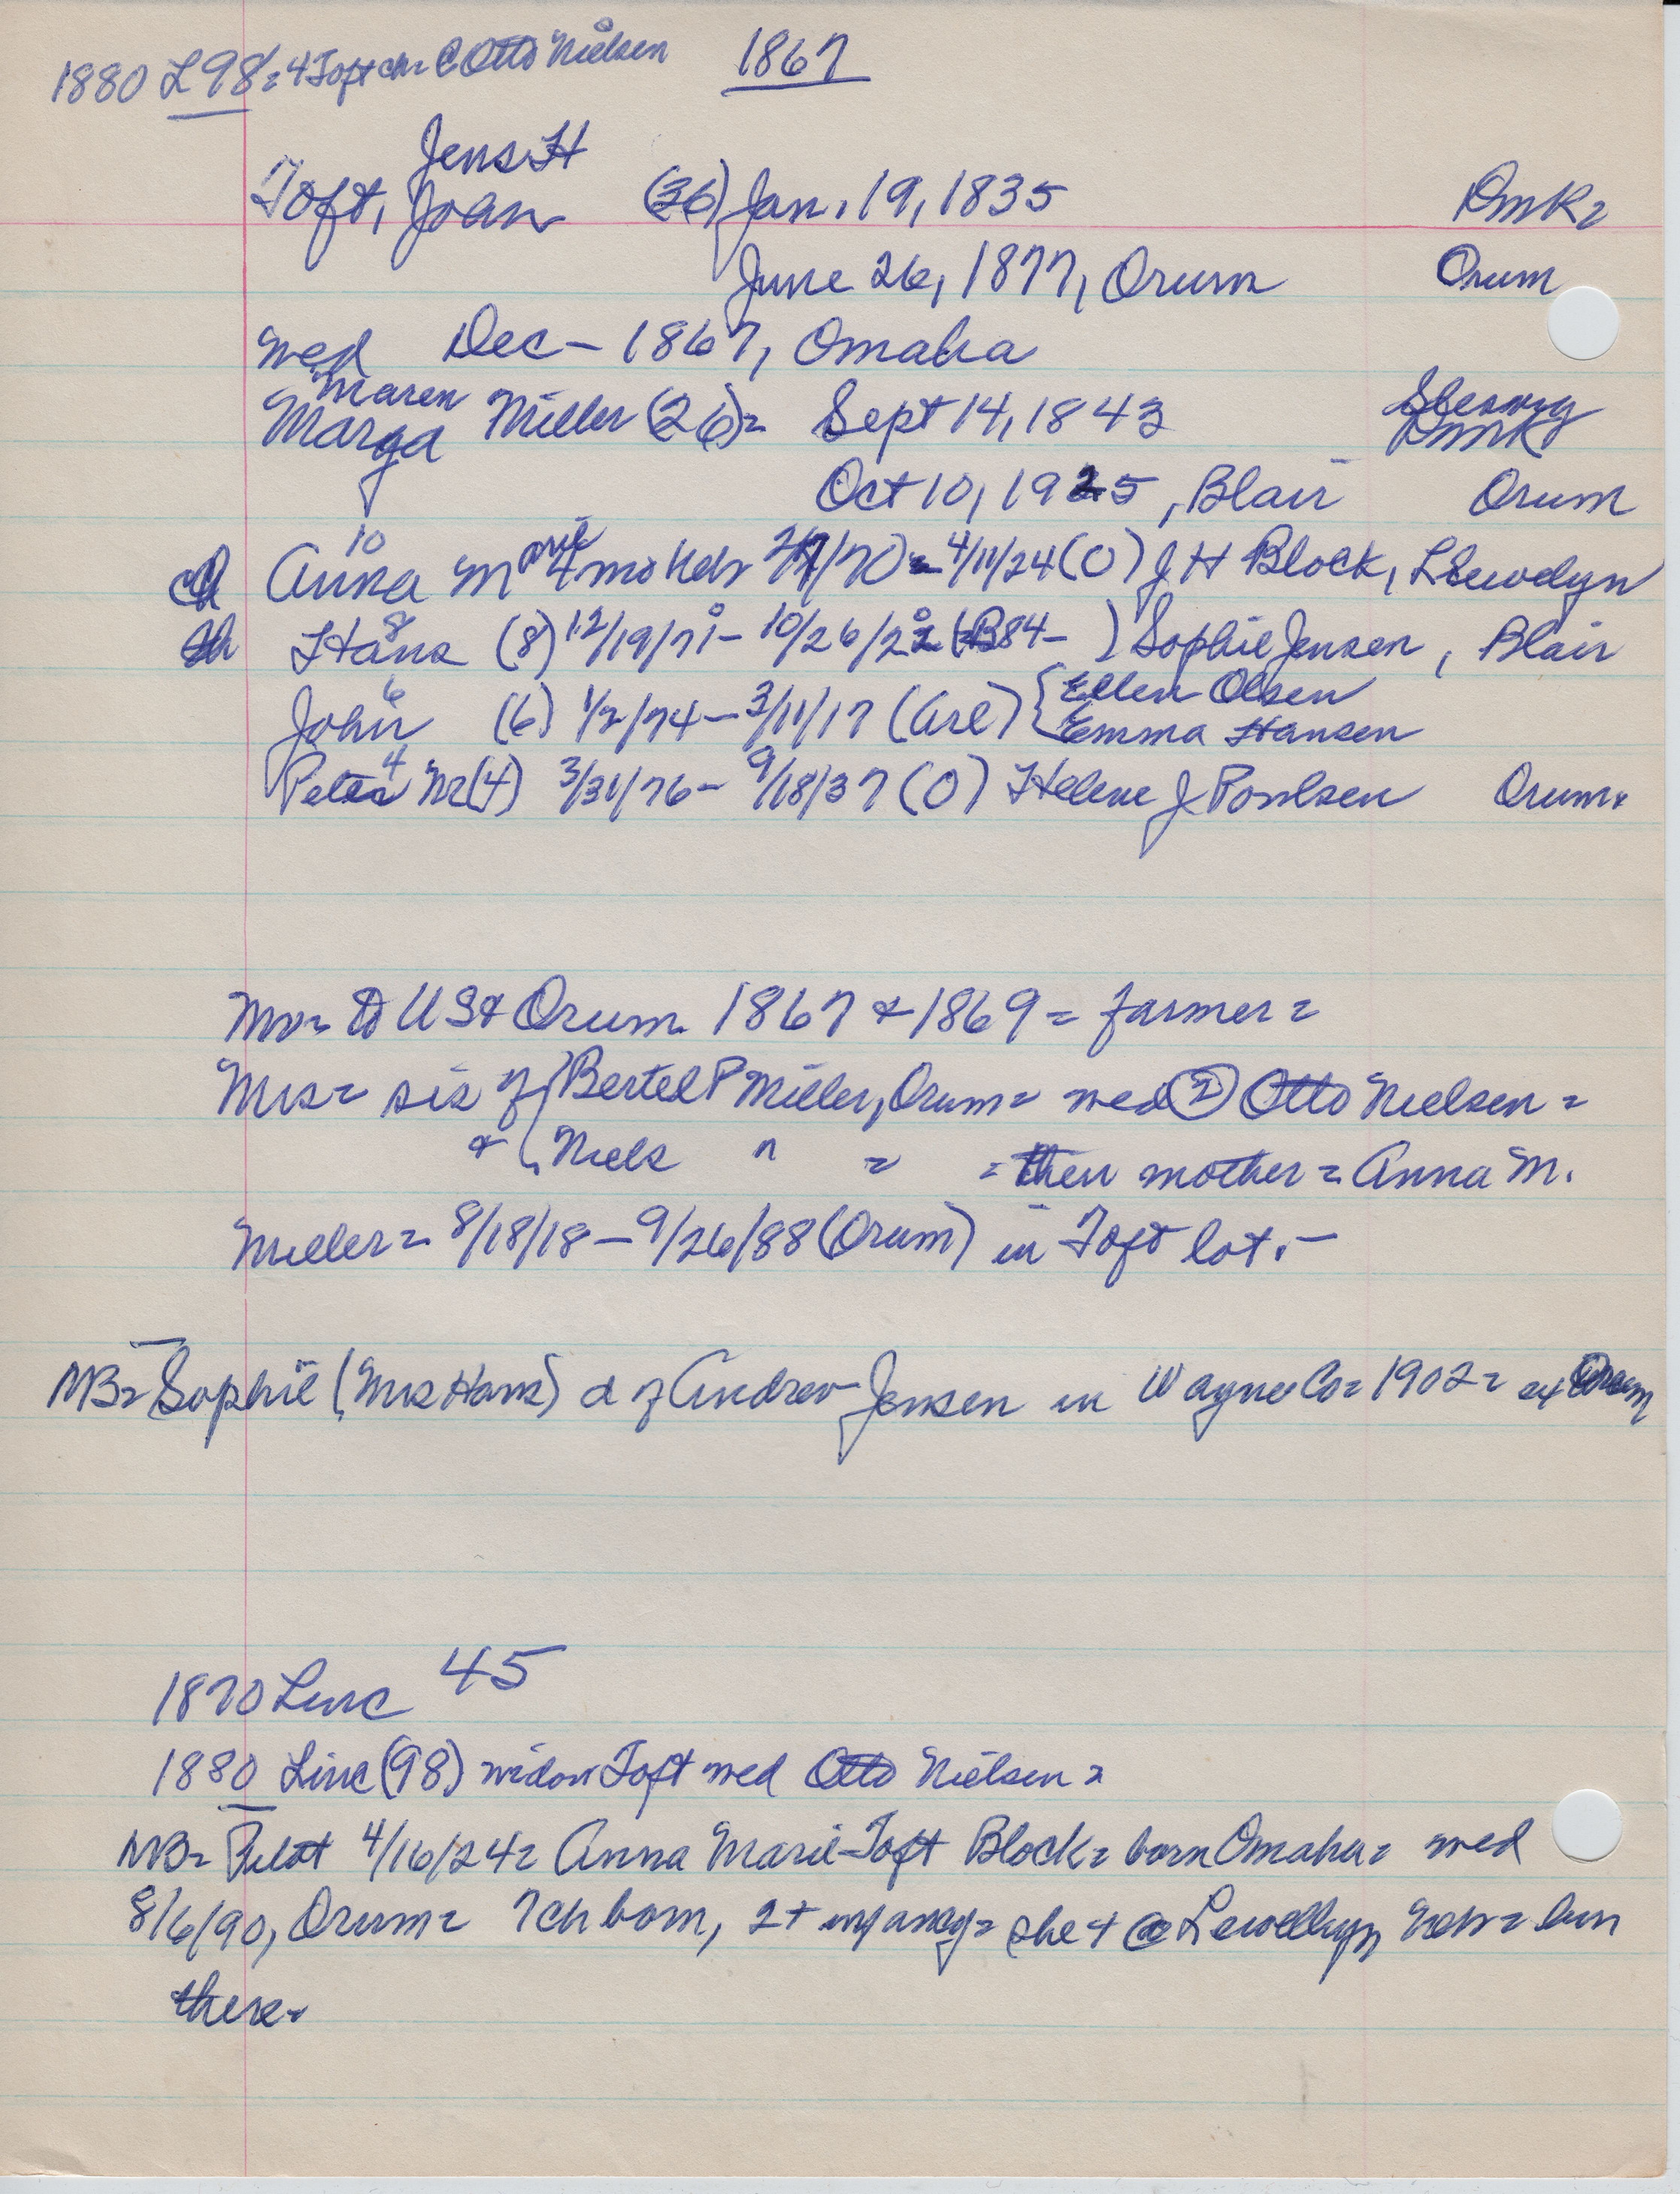 1880 L98 = 4 Toft ch = C Otto Nielsen 1867
Jens H
Toft, Joan (36) Jan. 19, 1835 Dmk =
June 26, 1877, Orum Orum
med Dec - 1867, Omaha
Maren Sleswig
Marga Miller (26) = Sept 14, 1843 Dmk
Oct 10, 1925, Blair Orum
10
ch Anna M 4 mo Neb 70 = 4/11/24 (O) J H Block, Llewelyn
8
Hans (8) 12/19/71 - 10/26/22 (B84- ) Sophie Jensen, Blair
6 Ellen Olsen
John (6) 1/2/74 - 3/11/17 (Arl) { Emma Hansen
4
Peter M (4) 3/31/76 - 9/18/37 (O) Helene J Poulsen Orum.
Mv = to US & Orum 1867 & 1869 = farmer =
Mrs = sis of { Bertel P Miller, Orum = med (2) Otto Nielsen =
& { Niels " = = their mother = Anna M.
Miller = 8/18/18 - 9/26/88 (Orum) in Toft lot. -
NB = Sophie (Mrs Hans) d of Andrew Jensen in Wayne Co = 1902 = ex Orum
1870 Linc 45
1880 Linc (98) widow Toft med Otto Nielsen =
NB = Pilot 4/16/24 = Anna Marie Toft Block = born Omaha = med
8/6/90, Orum = 7 ch born, 2 + infancy = she + @ Lewellyn, Neb = bur
there.